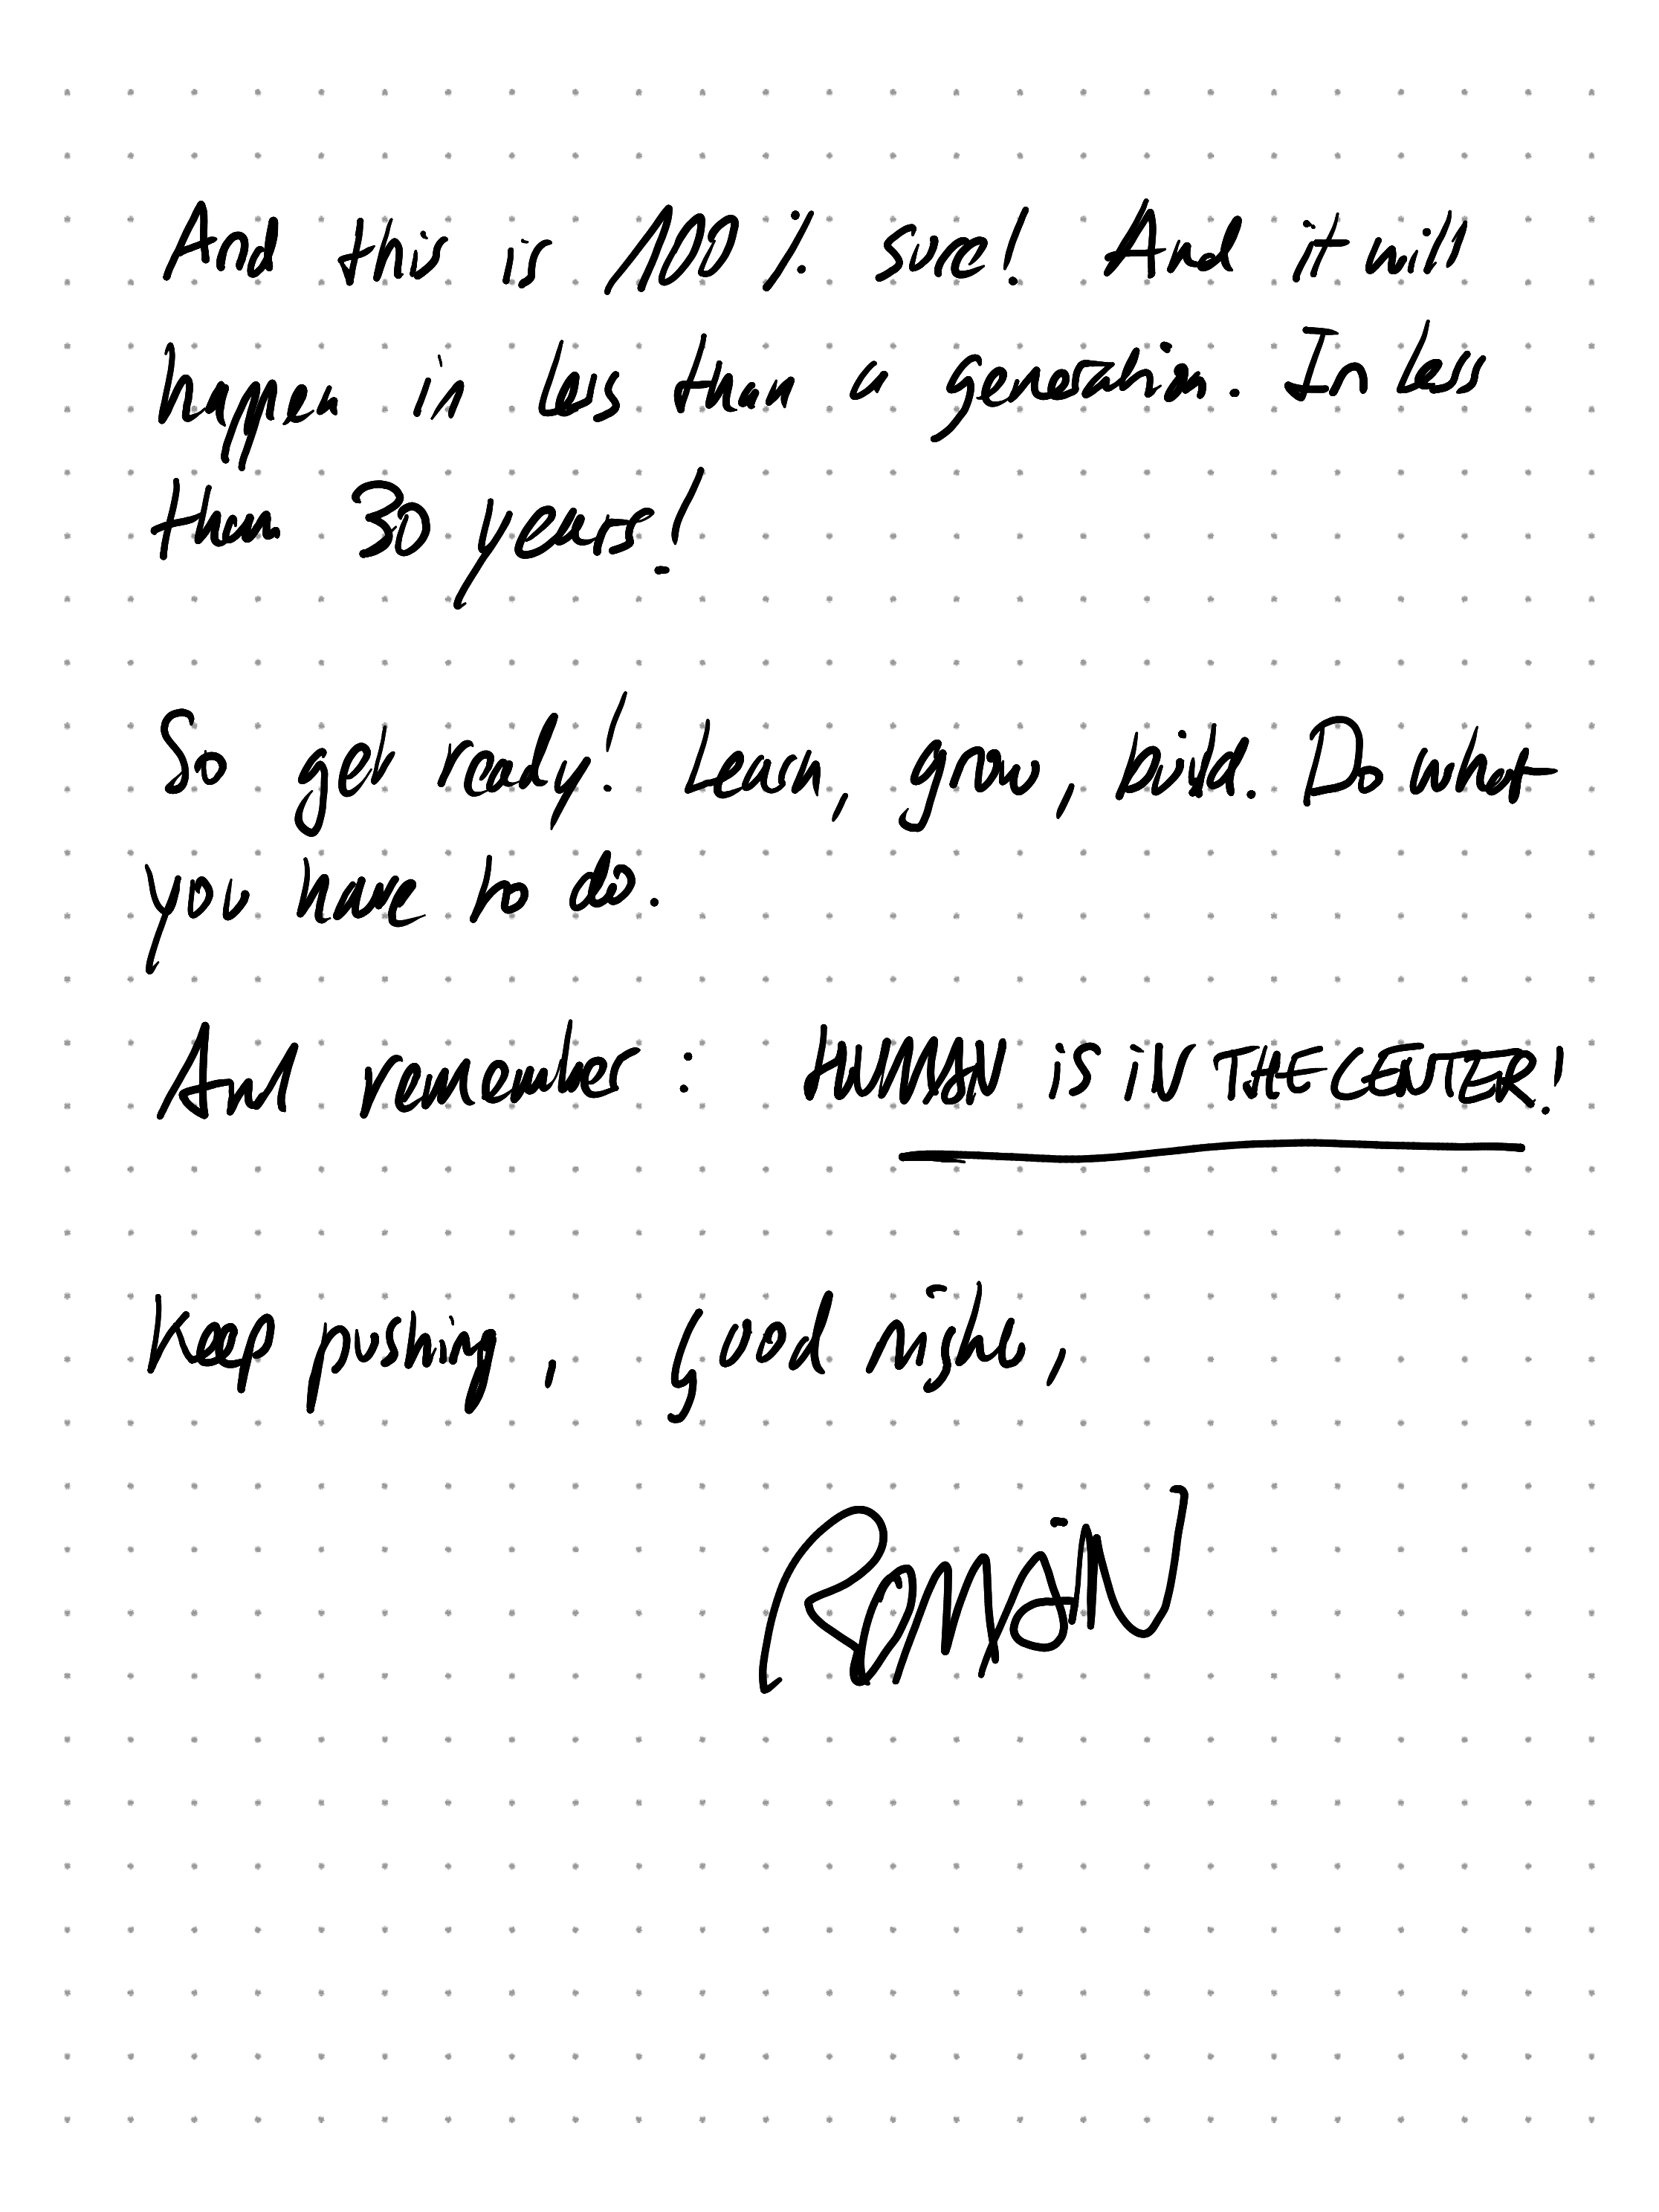 And this is 100% sure! And it will
happen in less than a generation. In less
than 30 years!
So get ready! Learn, grow, build. Do what
you have to do.
And remember : HUMAN iS iN THE CENTER!
Keep pushing, good night,
ROMAiN